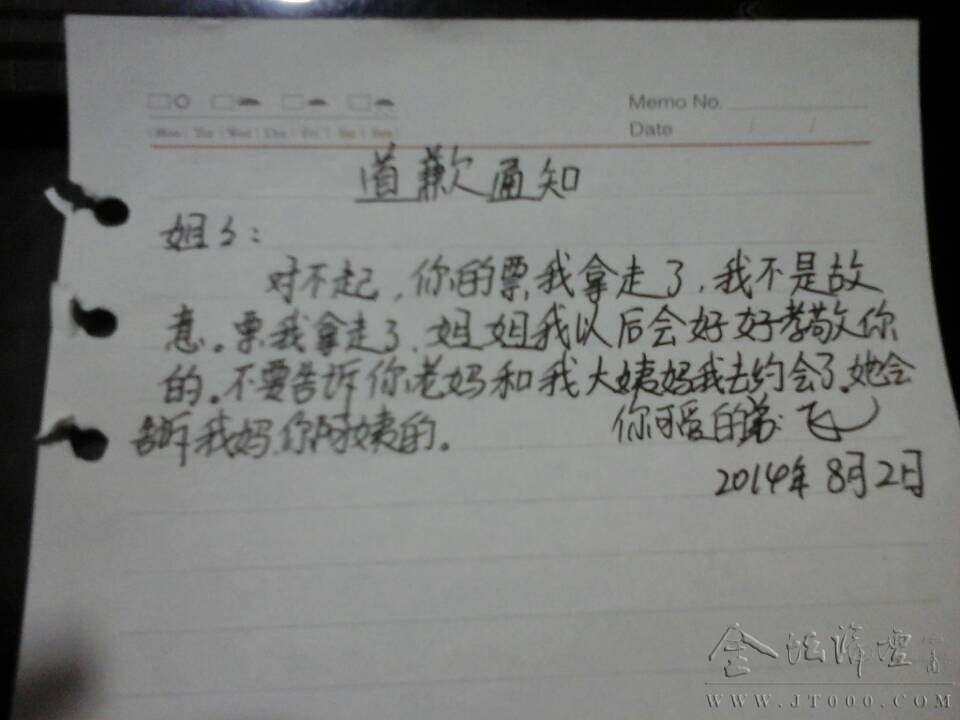 Memo No.
Date / /
Mon Tue Wed Thu Fri Sat Sun
道歉通知
姐々:
对不起,你的票我拿走了,我不是故
意。票我拿走了,姐姐我以后会好好孝敬你
的。不要告诉你老妈和我大姨妈我去约会了。她会
告诉我妈,你阿姨的。
你可爱的弟: 飞
2014年8月2日
金坛论坛
WWW.JT000.COM